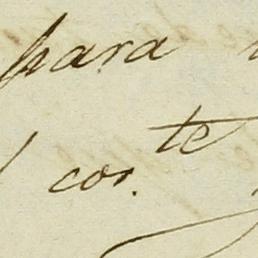 para
cor.te